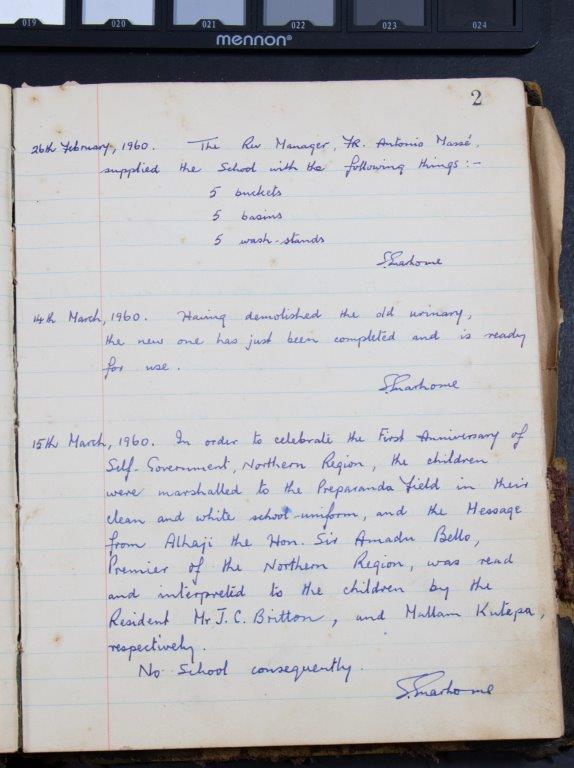 019 020 021 022 023 024
mennon®
2
26th February, 1960. The Rev Manager, FR. Antonio Massé,
supplied the School with the following things :-
5 buckets
5 basins
5 wash-stands
14th March, 1960. Having demolished the old urinary,
the new one has just been completed and is ready
for use.
15th March, 1960. In order to celebrate the First Anniversary of
Self-Government, Northern Region, the children
were marshalled to the Preparanda Field in their
clean and white school-uniform, and the Message
from Alhaji the Hon. Sir Amadu Bello,
Premier of the Northern Region, was read
and interpreted to the children by the
Resident Mr J. C. Britton, and Mallam Kutepa,
respectively.
No School consequently.